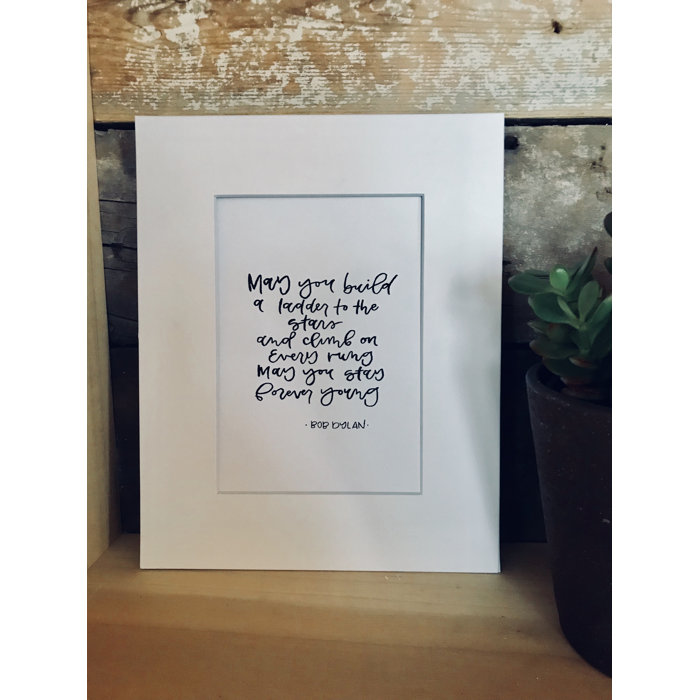 May you build
a ladder to the
stars
and climb on
every rung
May you stay
forever young
· BOB DYLAN ·